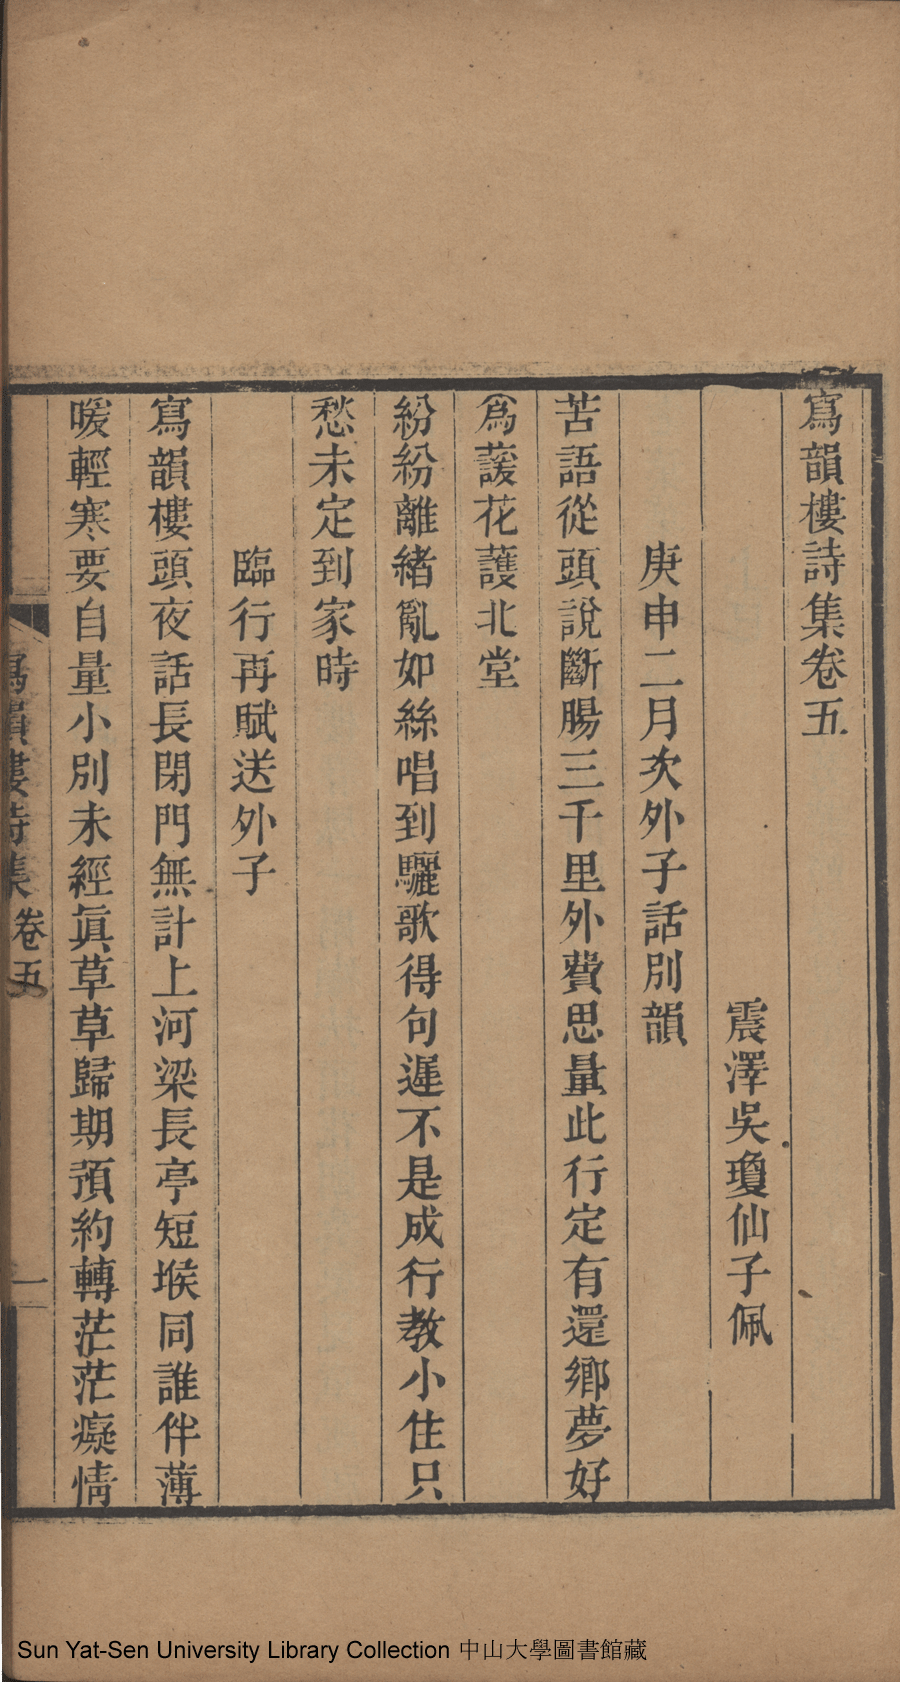 寫韻樓詩集卷五
震澤吳瓊仙子佩
庚申二月次外子話別韻
苦語從頭說斷腸三千里外費思量此行定有還鄉夢好
爲萲花護北堂
紛紛離緒亂如絲唱到驪歌得句遲不是成行教小住只
愁未定到家時
臨行再賦送外子
寫韻樓頭夜話長閉門無計上河梁長亭短堠同誰伴薄
暖輕寒要自量小別未經眞草草歸期預約轉茫茫癡情
寫韻樓詩集 卷五 一
Sun Yat-Sen University Library Collection 中山大學圖書館藏